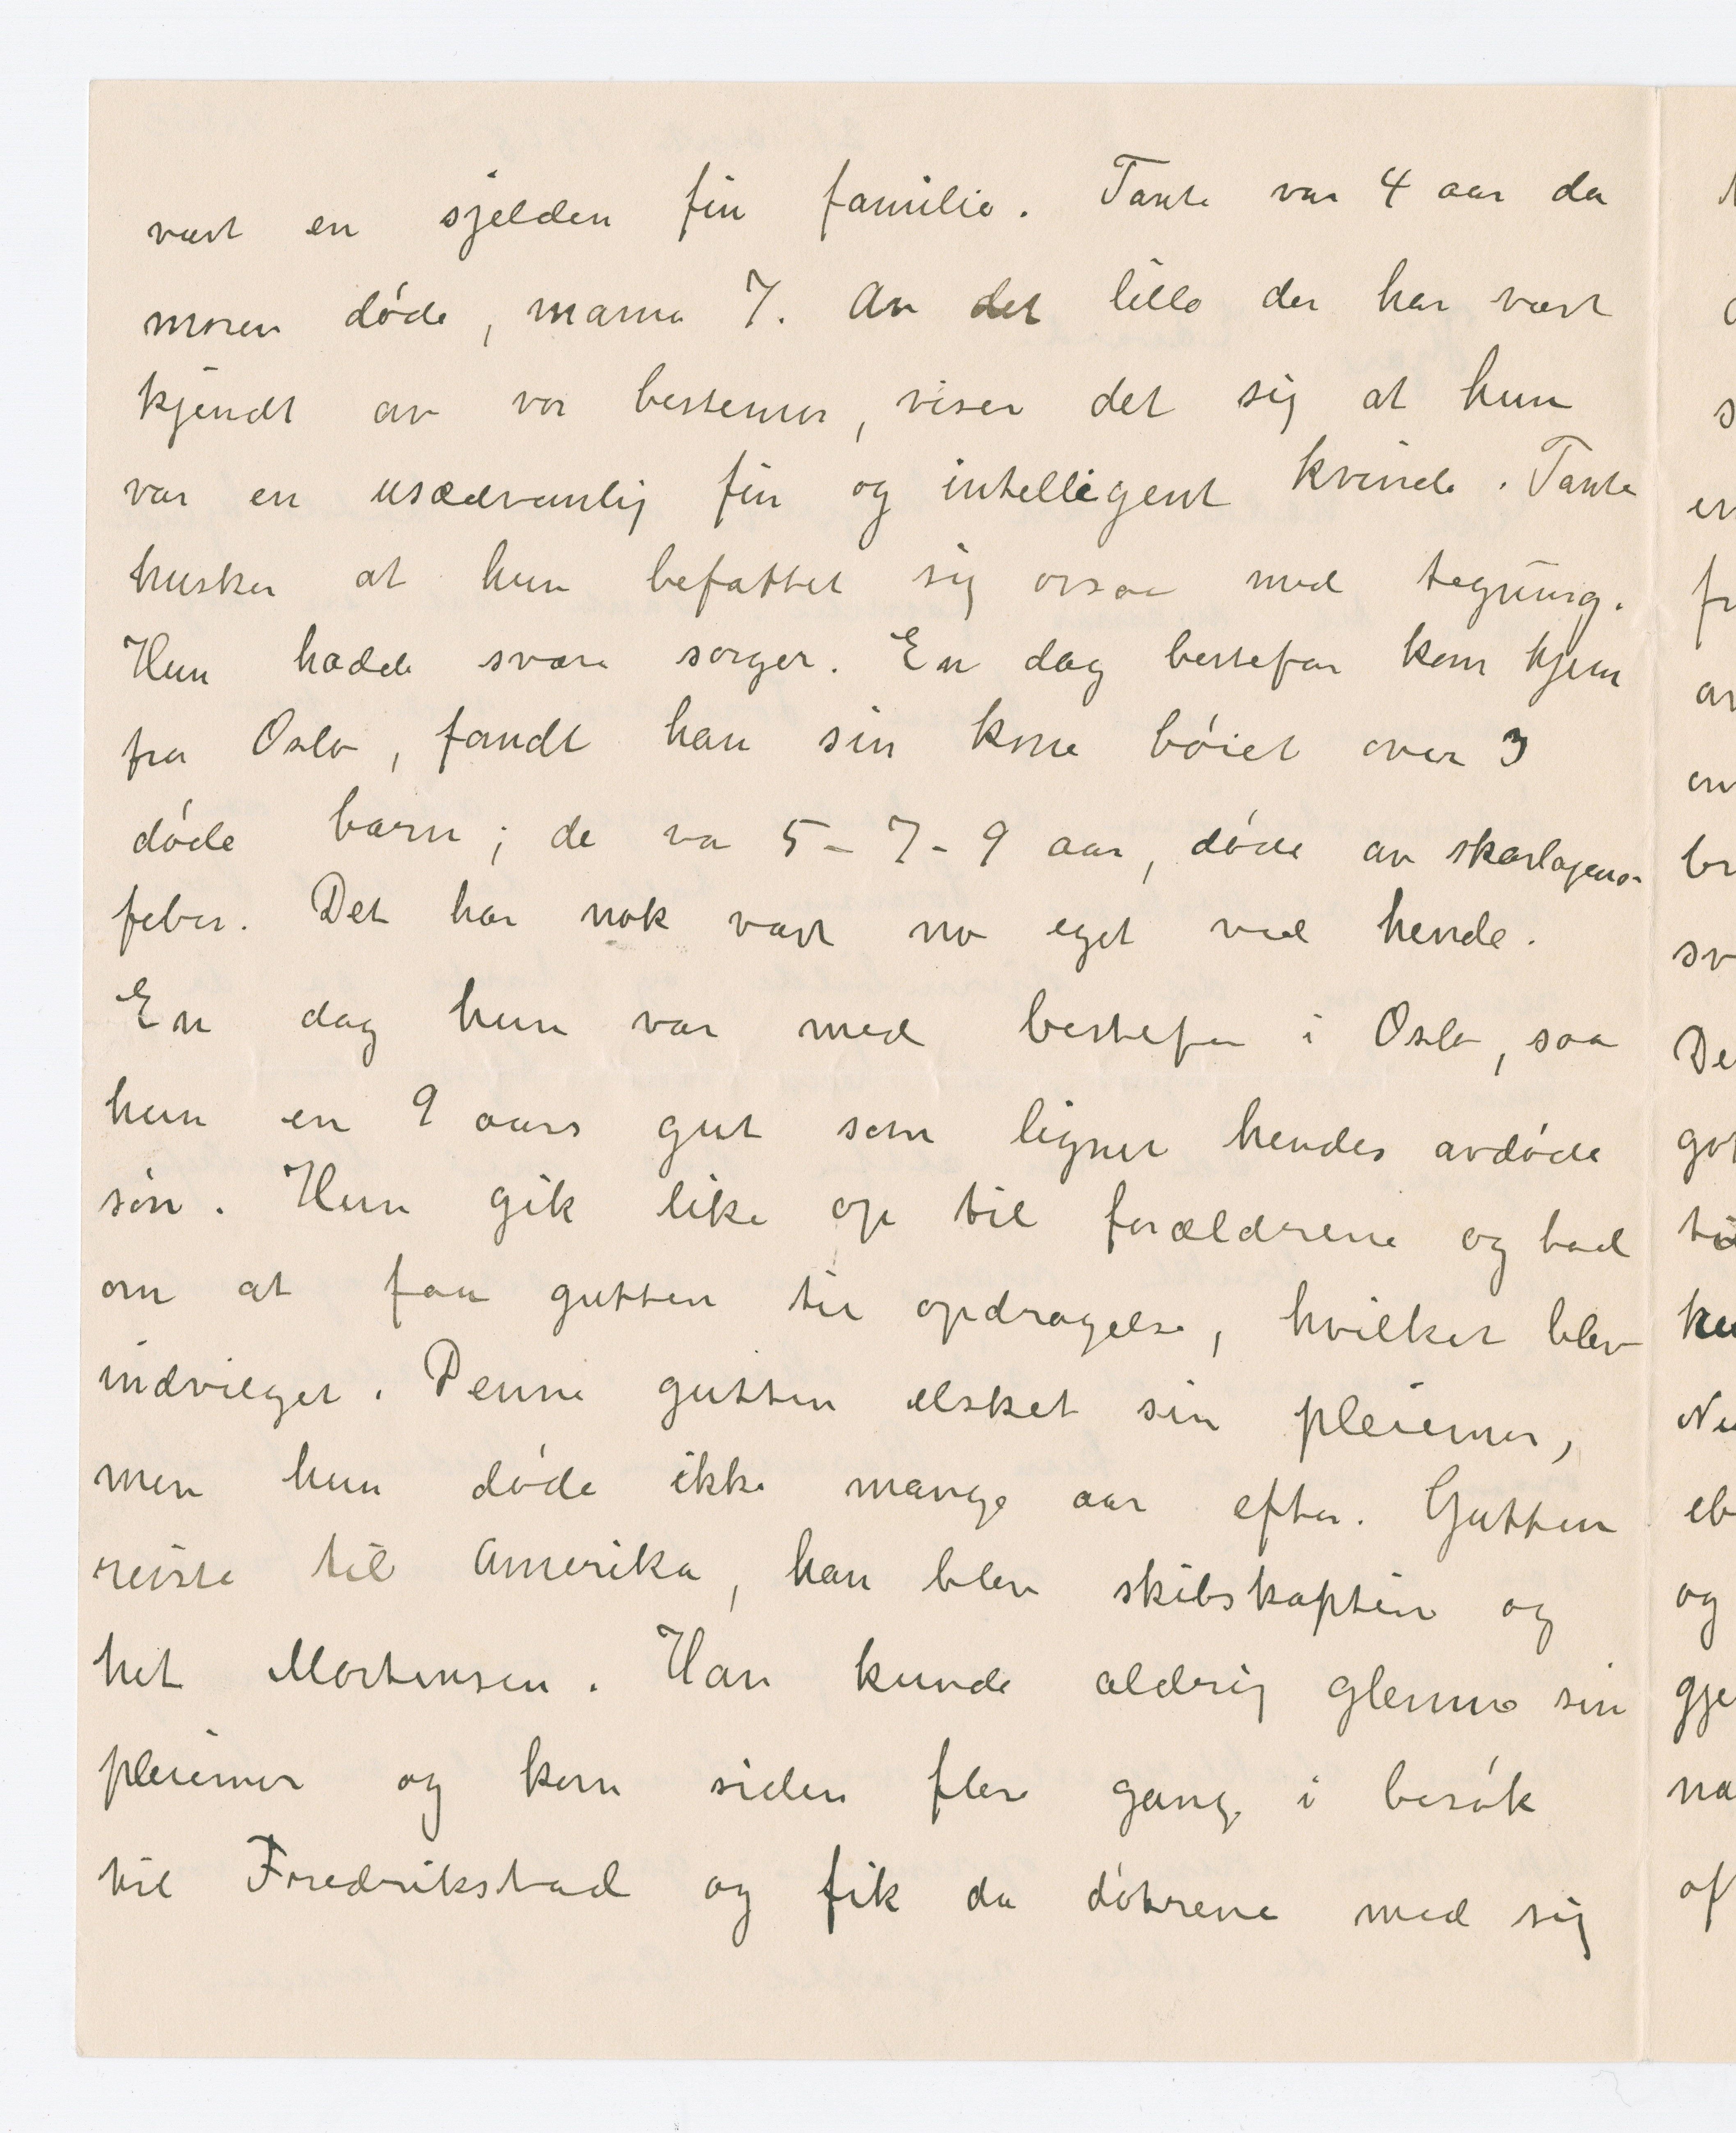 vært en sjelden fin familie. Tante var 4 aar da
moren døde, mama 7. Av det lille der har vært
kjendt av vor bestemor, viser det sig at hun
var en usædvanlig fin og intelligent kvinde. Tante
husker at hun befattet sig ossaa med tegning.
Hun hadde svære sorger. En dag bestefar kom hjem
fra Oslo, fandt han sin kone bøiet over 3
døde barn; de va 5 - 7 - 9 aar, døde av skarlagens-
feber. Det har nok vært no eget ved hende.
En dag hun var med bestefar i Oslo, saa
hun en 9 aars gut som lignet hendes avdøde
søn. Hun gik like op til forældrene og bad
om at faa gutten til opdragelse, hvilket blev
indvilget. Denne gutten elsket sin pleiemor,
men hun døde ikke mange aar efter. Gutten
reiste til Amerika, han blev skibskaptein og
het Mortensen. Han kunde aldrig glemme sin
pleiemor og kom siden flere gange i besøk
til Fredrikstad og fik da døtrene med sig